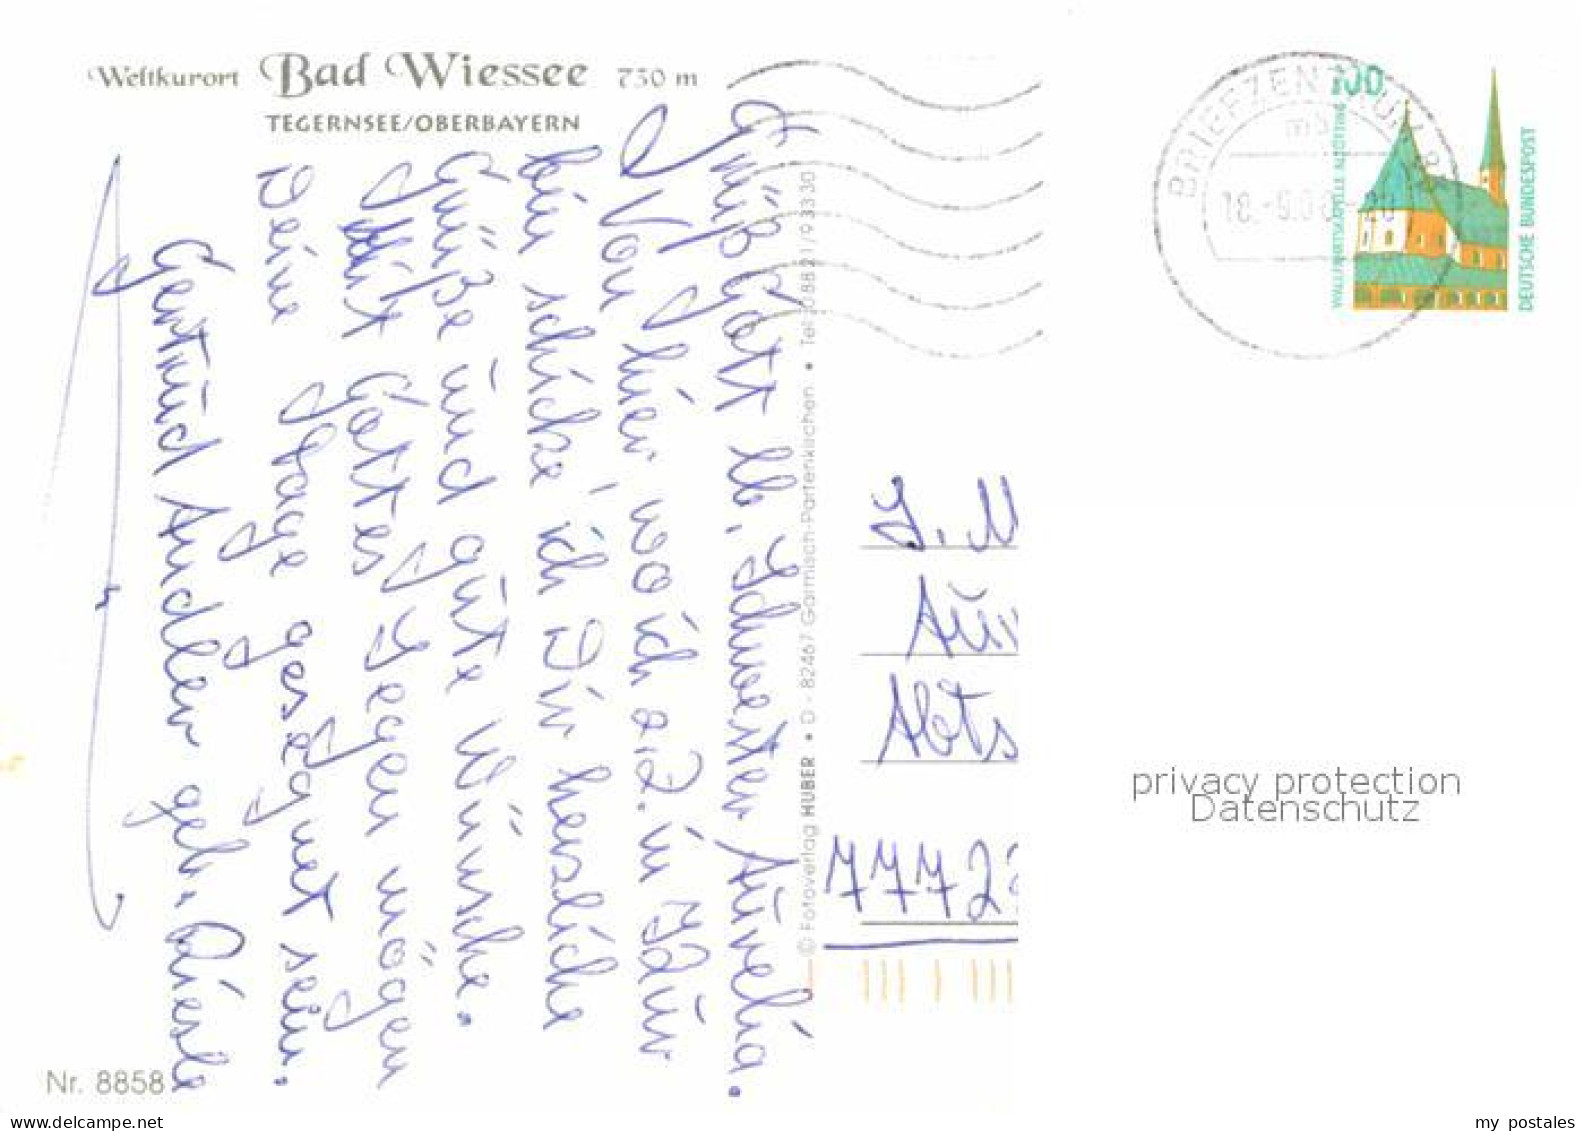 Weltkurort Bad Wiessee 730 m
TEGERNSEE/OBERBAYERN
Grüß Gott lb. Schwester Aurelia.
Von hier wo ich z.Z. in Kur
bin schicke ich Dir herzliche
Grüße und gute Wünsche.
Mit Gottes Segen mögen
Deine Tage gesegnet sein.
Gertrud Audler geb.
Nr. 8858
© Fotoverlag HUBER • D - 82467 Garmisch-Partenkirchen • Tel. 08821/93330
BRIEFZENTRUM
100
WALLFAHRTSKAPELLE ALTÖTTING
DEUTSCHE BUNDESPOST
S. M
Abts
7772
privacy protection
Datenschutz
my postales